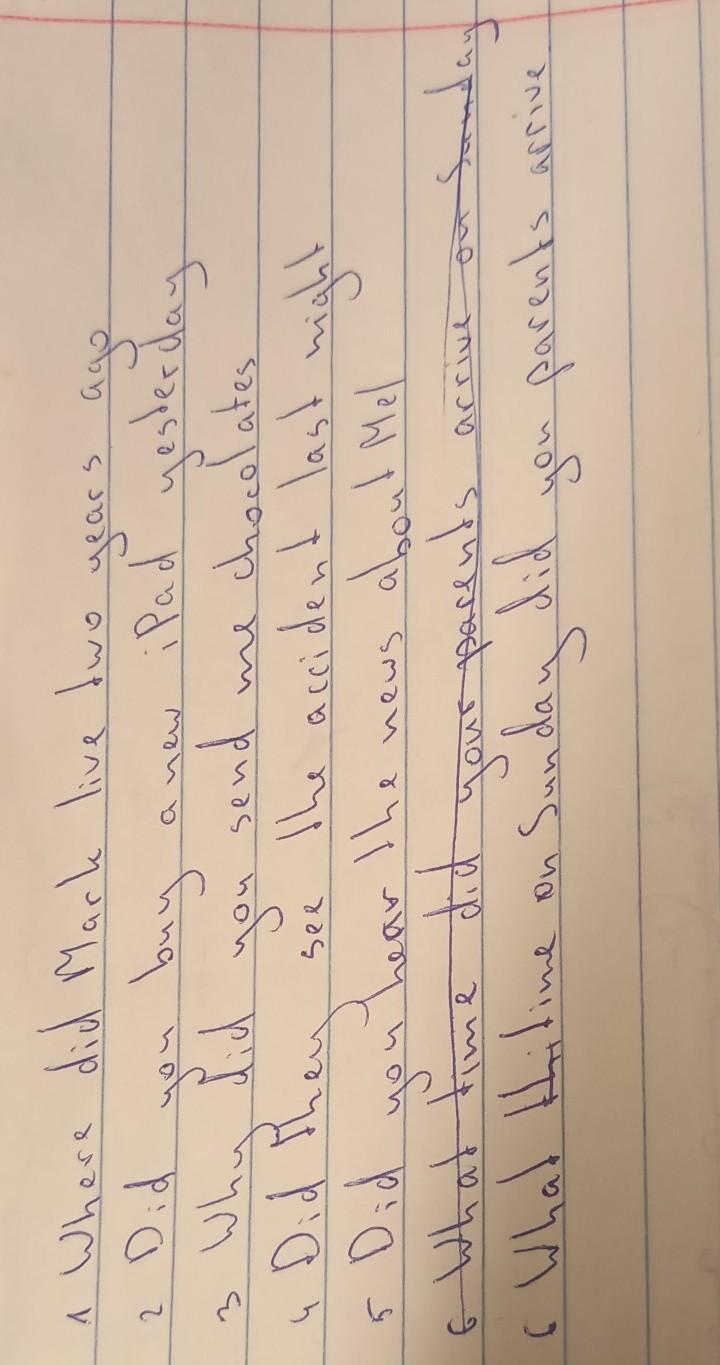 1 Where did Mark live two years ago
2 Did you buy a new iPad yesterday
3 Why did you send me chocolates
4 Did they see the accident last night
5 Did you hear the news about Mel
6 What time did your parents arrive on Sunday
6 What thi time on Sunday did you parents arrive